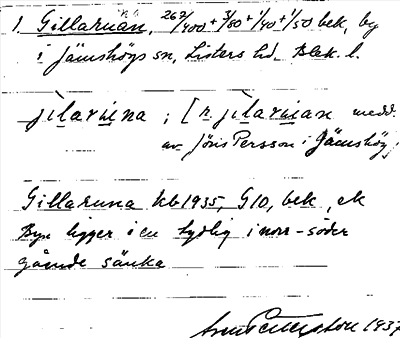 1. Gillaruan, 263/400 + 3/80 + 1/40 + 1/50 bek, by
i Jämshögs sn, Listers hd. Blek. l.
jilaruna ; [n. jilaruan medd.
av Jöns Persson i Jämshög;
Gillaruna kb 1935, G10, bek, ek
Byn ligger i en tydlig i norr-söder
gående sänka
1937